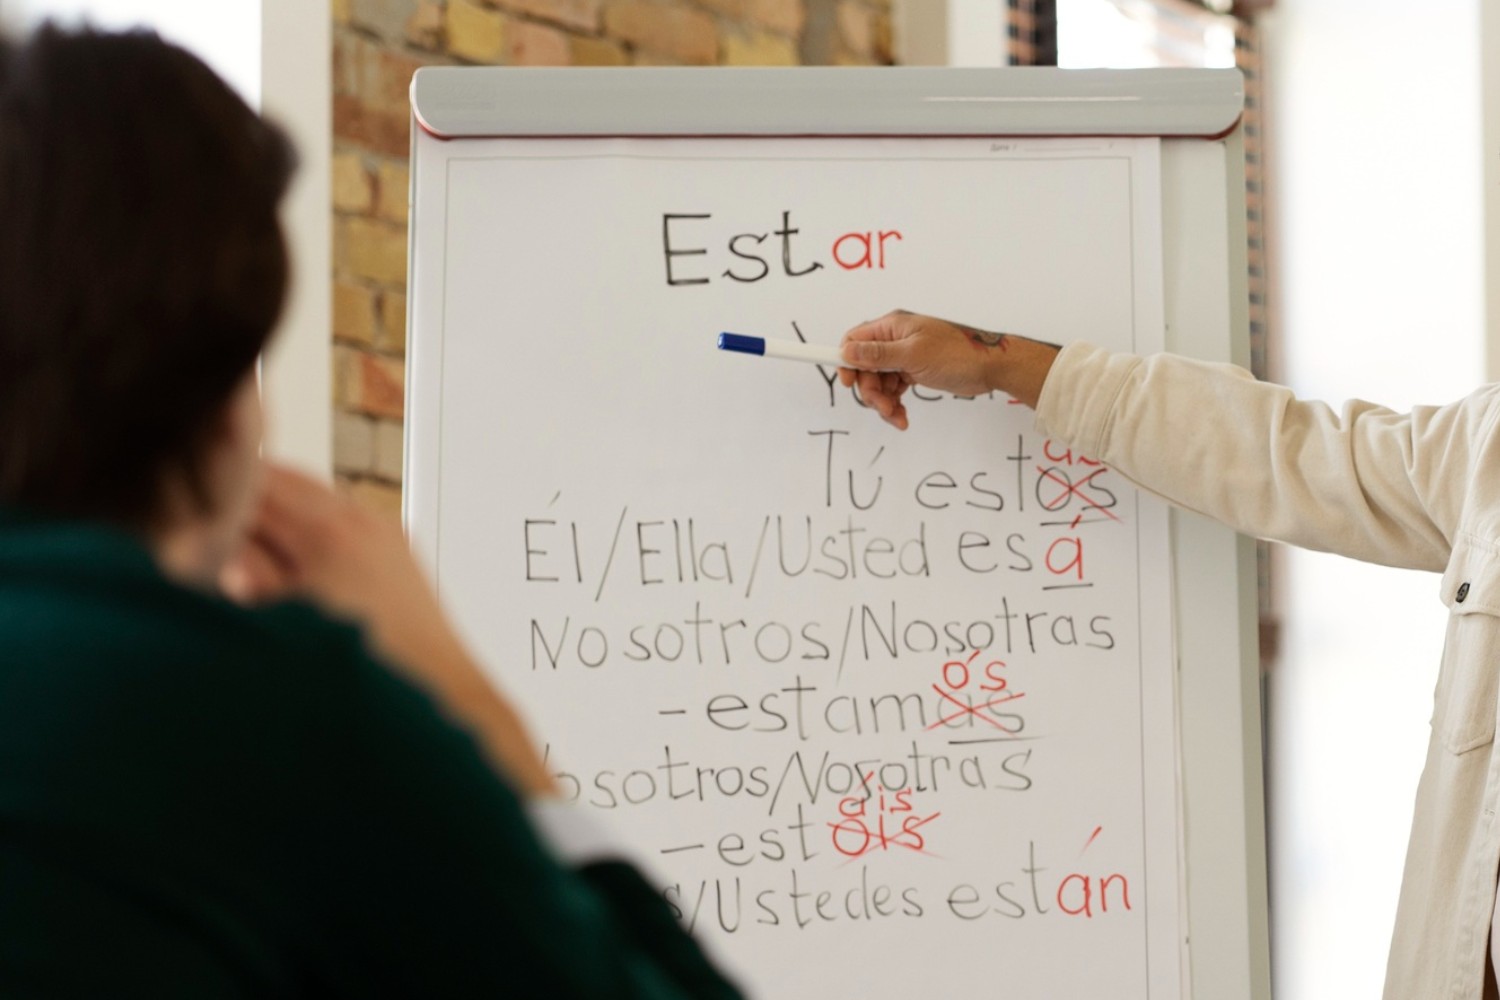 Estar
Yo
as
Tú estos
Él/Ella/Usted esá
Nosotros/Nosotras
ós
- estamas
osotros/Nosotras
áis
- estois
s/Ustedes están